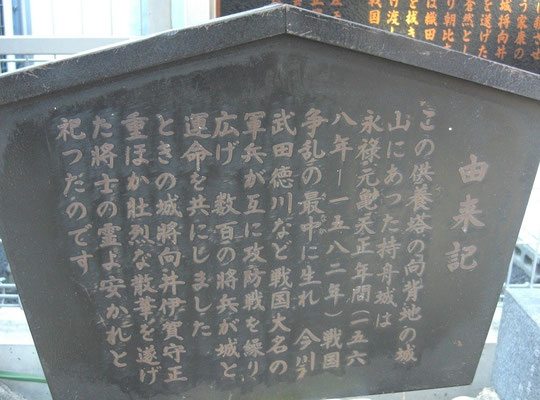 由来記
この供養塔の向背地の城
山にあった持舟城は
永禄元亀天正年間(一五六
八年−一五八二年)戦国
争乱の最中に生れ 今川
武田徳川など戦国大名の
軍兵が互に攻防戦を繰り
広げ 数百の将兵が城と
運命を共にしました
ときの城将向井伊賀守正
重ほか壮烈な散華を遂げ
た将士の霊よ安かれと
祀つたのです